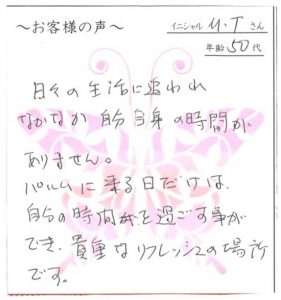 〜お客様の声〜
イニシャル M.T さん
年齢 50 代
日々の生活に追われ
なかなか自分自身の時間が
ありません。
パルムに来る日だけは、
自分の時間を過ごす事が
でき、貴重なリフレッシュの場所
です。